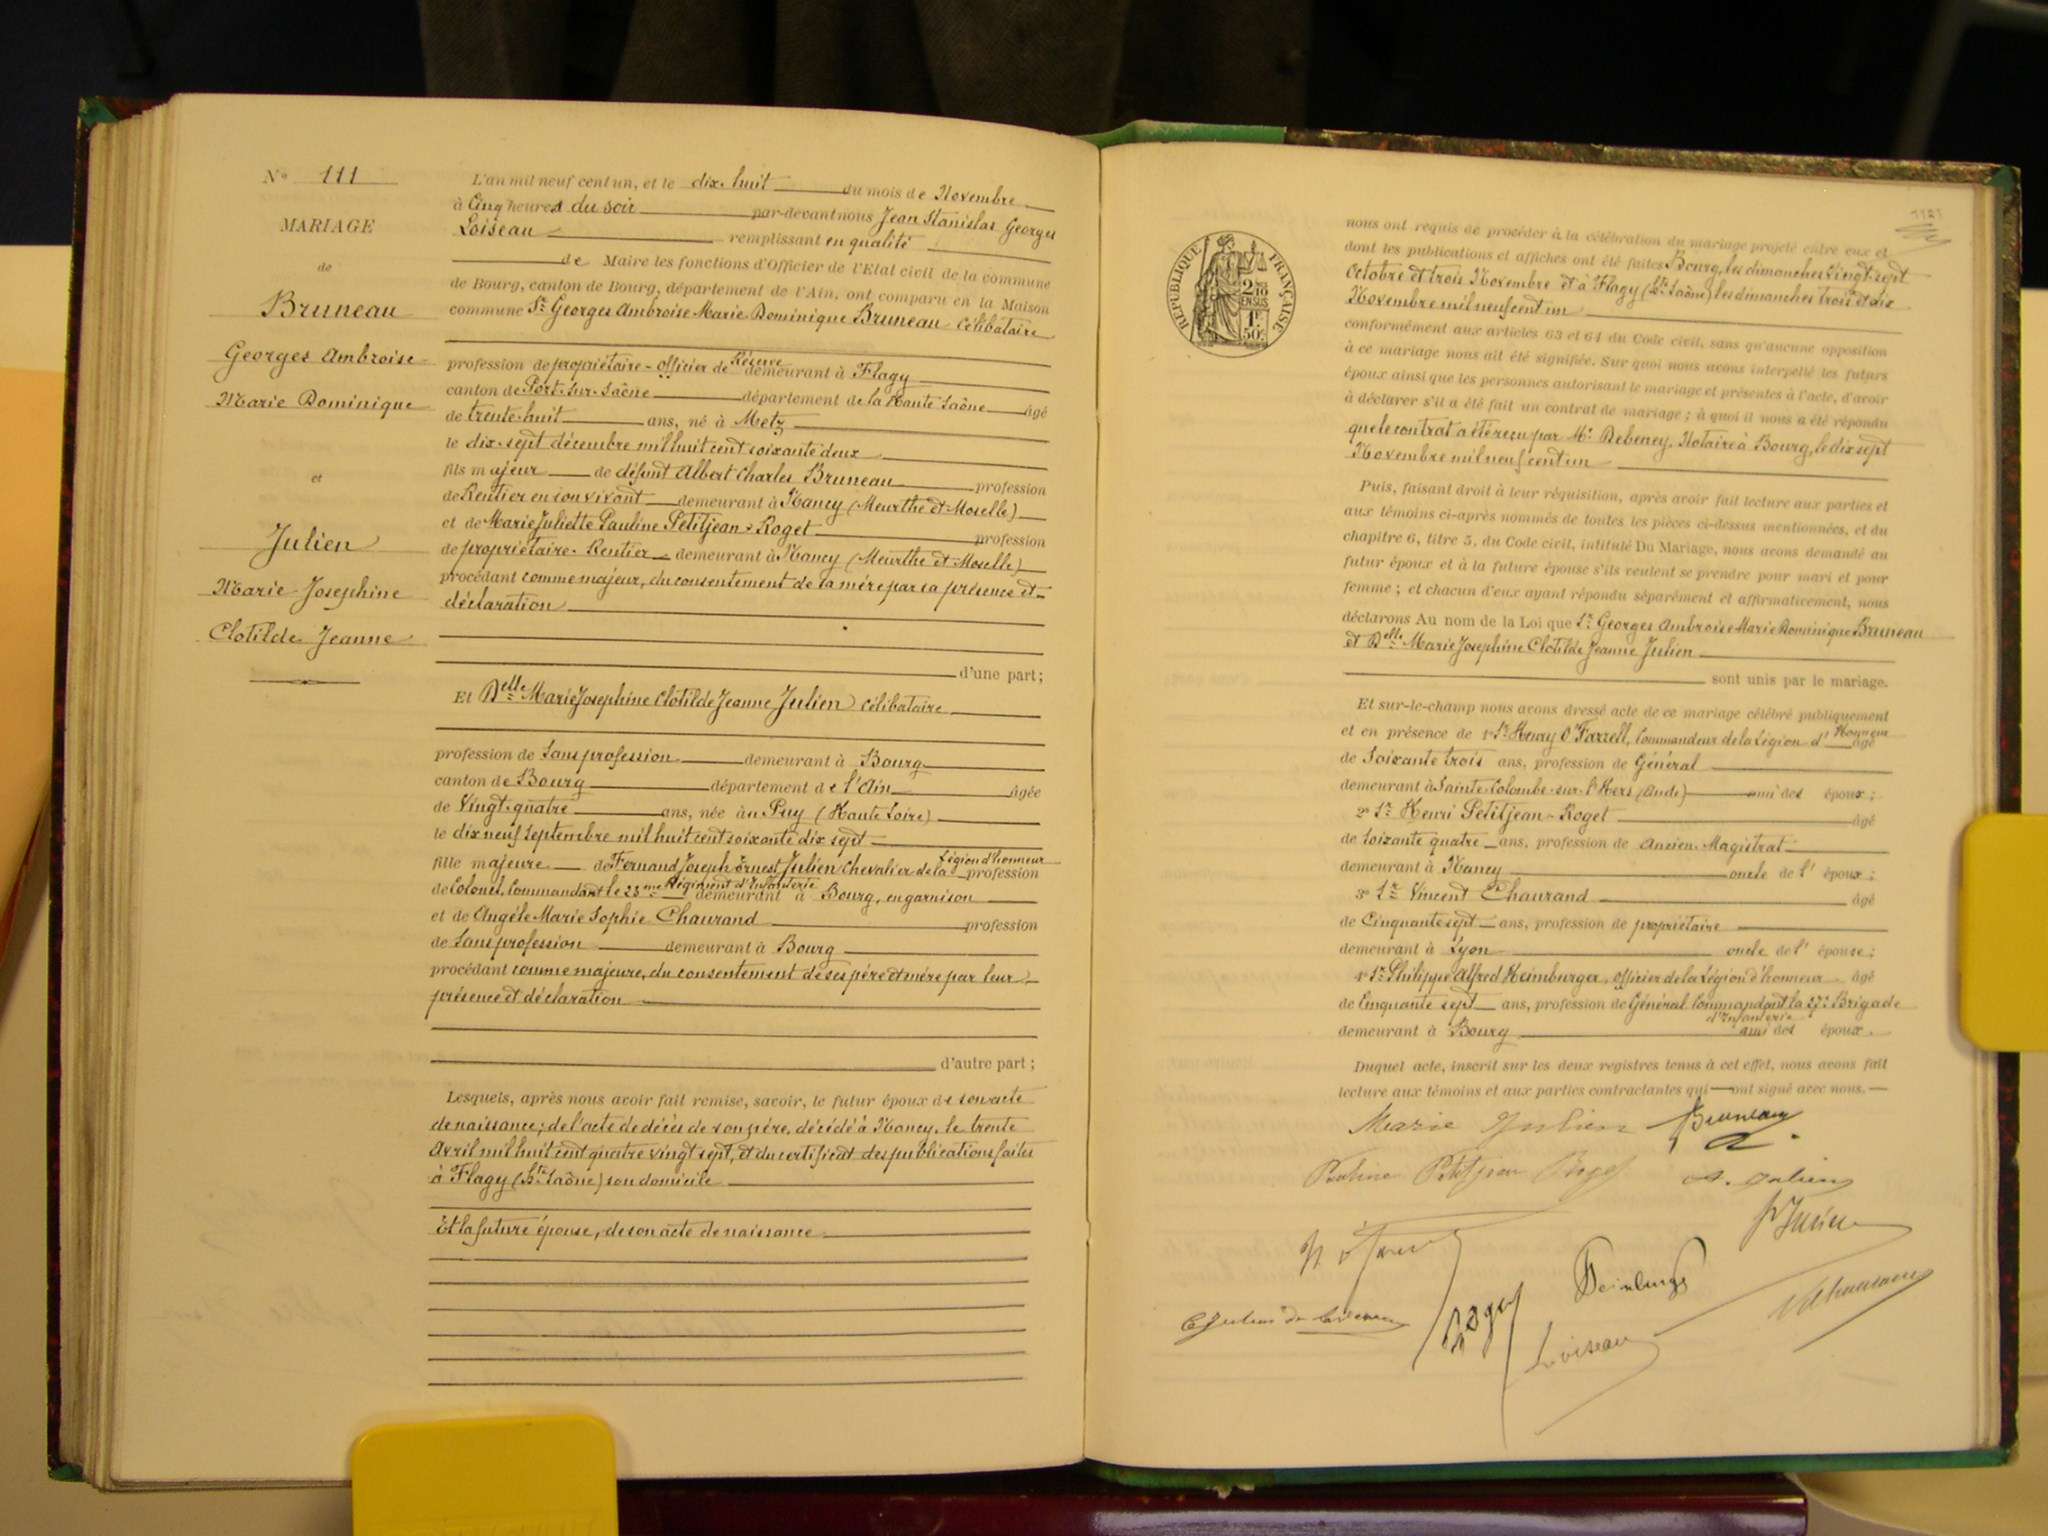 N° 111
MARIAGE
de
Bruneau
Georges Ambroise
Marie Dominique
et
Julien
Marie Josephine
Clotilde Jeanne
L'an mil neuf cent un, et le dix-huit du mois de Novembre
à Cinq heures du soir par-devant nous Jean Stanislas Georges
Loiseau remplissant en qualité
de Maire les fonctions d'Officier de l'Etat civil de la commune
de Bourg, canton de Bourg, département de l'Ain, ont comparu en la Maison
commune Sr Georges Ambroise Marie Dominique Bruneau célibataire
profession de propriétaire - Officier de Réserve demeurant à Flagy
canton de Port-sur-Saône département de la Haute Saône âgé
de trente-huit ans, né à Metz
le dix-sept décembre mil huit cent soixante deux
fils majeur de défunt Albert Charles Bruneau profession
de Rentier en son vivant demeurant à Nancy (Meurthe et Moselle)
et de Marie Juliette Pauline Petitjean-Roget profession
de propriétaire-Rentier demeurant à Nancy (Meurthe et Moselle)
procédant comme majeur, du consentement de sa mère par sa présence et
déclaration
d'une part;
Et Delle Marie Josephine Clotilde Jeanne Julien célibataire
profession de Sans profession demeurant à Bourg
canton de Bourg département de l'Ain âgée
de Vingt-quatre ans, née au Puy (Haute Loire)
le dix neuf Septembre mil huit cent soixante dix sept
fille majeure de Fernand Joseph Ernest Julien Chevalier de la Légion d'honneur profession
de Colonel, Commandant le 23me Régiment d'Infanterie demeurant à Bourg, en garnison
et de Angèle Marie Sophie Chaurand profession
de Sans profession demeurant à Bourg
procédant comme majeure, du consentement de ses père et mère par leur
présence et déclaration
d'autre part;
Lesquels, après nous avoir fait remise, savoir, le futur époux de son acte
de naissance; de l'acte de décès de son père, décédé à Nancy, le trente
Avril mil huit cent quatre vingt sept, et du certificat des publications faites
à Flagy (Hte Saône) son domicile
Et la future épouse, de son acte de naissance
RÉPUBLIQUE FRANÇAISE
2/10 EN SUS
1F 50c
nous ont requis de procéder à la célébration du mariage projeté entre eux et
dont les publications et affiches ont été faites Bourg, les dimanches vingt-sept
Octobre et trois Novembre et à Flagy (Hte Saône) les dimanches trois et dix
Novembre mil neuf cent un
conformément aux articles 63 et 64 du Code civil, sans qu'aucune opposition
à ce mariage nous ait été signifiée. Sur quoi nous avons interpellé les futurs
époux ainsi que les personnes autorisant le mariage et présentes à l'acte, d'avoir
à déclarer s'il a été fait un contrat de mariage; à quoi il nous a été répondu
que le contrat a été reçu par Me Debeney, Notaire à Bourg, le dix sept
Novembre mil neuf cent un
Puis, faisant droit à leur réquisition, après avoir fait lecture aux parties et
aux témoins ci-après nommés de toutes les pièces ci-dessus mentionnées, et du
chapitre 6, titre 5, du Code civil, intitulé Du Mariage, nous avons demandé au
futur époux et à la future épouse s'ils veulent se prendre pour mari et pour
femme; et chacun d'eux ayant répondu séparément et affirmativement, nous
déclarons Au nom de la Loi que Sr Georges Ambroise Marie Dominique Bruneau
et Delle Marie Josephine Clotilde Jeanne Julien
sont unis par le mariage.
Et sur-le-champ nous avons dressé acte de ce mariage célébré publiquement
et en présence de 1° Sr Henry O'Farrell, Commandeur de la Légion d'Honneur âgé
de Soixante trois ans, profession de Général
demeurant à Sainte-Colombe-sur-l'Hers (Aude) ami des époux;
2° Sr Henri Petitjean-Roget âgé
de soixante quatre ans, profession de Ancien Magistrat
demeurant à Nancy oncle de l'époux;
3° Sr Vincent Chaurand âgé
de Cinquante sept ans, profession de propriétaire
demeurant à Lyon oncle de l'épouse;
4° Sr Philippe Alfred Heimburger, Officier de la Légion d'honneur âgé
de Cinquante sept ans, profession de Général Commandant la Brigade
d'Infanterie
demeurant à Bourg ami des époux.
Duquel acte, inscrit sur les deux registres tenus à cet effet, nous avons fait
lecture aux témoins et aux parties contractantes qui ont signé avec nous.
Marie Julien Bruneau
Pauline Petitjean Roget A. Julien
Julien
H. O'Farrell
Heimburger
Roget
Loiseau